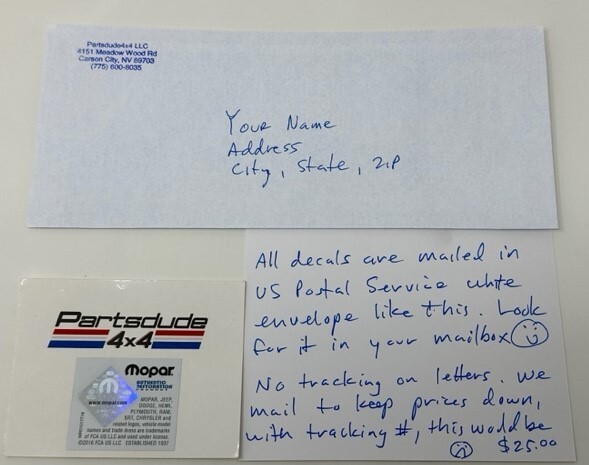 Partsdude4x4 LLC
4151 Meadow Wood Rd
Carson City, NV 89703
(775) 600-8035
Your Name
Address
City, State, ZIP
All decals are mailed in
US Postal Service white
envelope like this. Look
for it in your mailbox
No tracking on letters. We
mail to keep prices down,
with tracking #, this would be
$25.00
Partsdude
4x4
Mopar
AUTHENTIC
RESTORATION
PRODUCT
www.mopar.com
MOPAR, JEEP,
DODGE, HEMI,
PLYMOUTH, RAM,
SRT, CHRYSLER and
related logos, vehicle model
names and trade dress are trademarks
of FCA US LLC and used under license.
©2016 FCA US LLC ESTABLISHED 1937